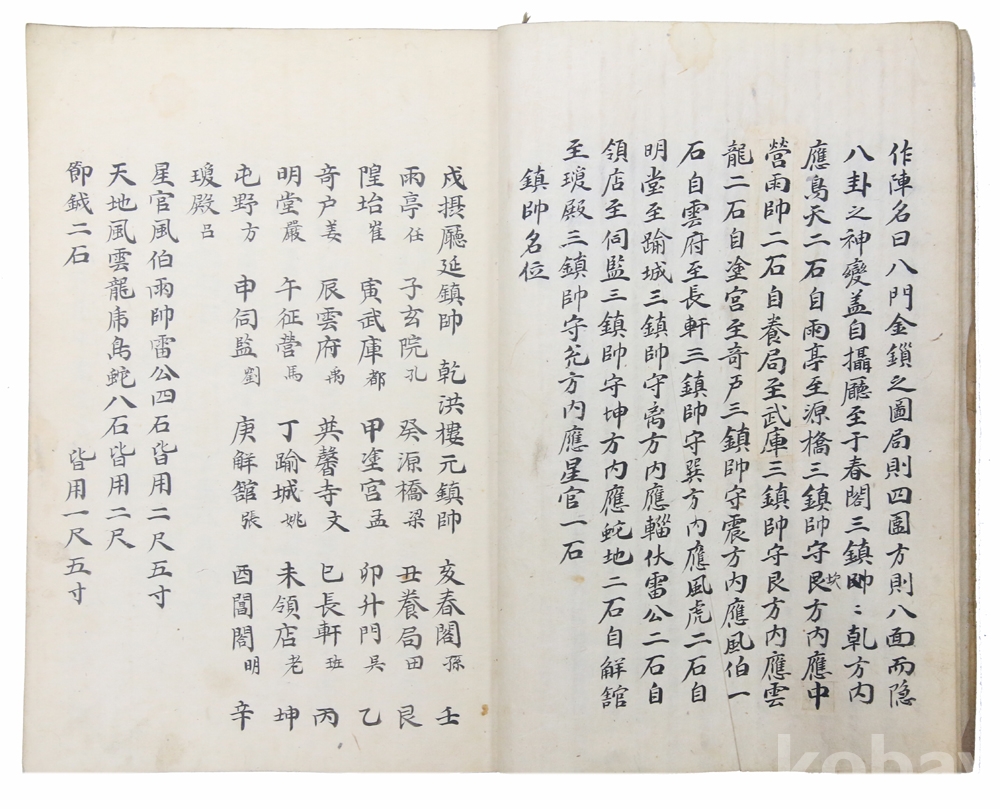 作陣名曰八門金鎖之圖局則四圍方則八面而隐
八卦之神變盖自攝廳至于春閣三鎮帥〻乹方内
應鳥天二石自雨亭至源橋三鎮帥守艮坎方内應中
營雨帥二石自養局至武庫三鎮帥守艮方内應雲
龍二石自塗宫至竒戸三鎮帥守震方内應風伯一
石自雲府至長軒三鎮帥守巽方内應風虎二石自
明堂至踰城三鎮帥守离方内應輜伏雷公二石自
領店至伺監三鎮帥守坤方内應蛇地二石自觧舘
至瓊殿三鎮帥守兌方内應星官一石
鎮帥名位
戌摂廳延鎮帥 乾洪樓元鎮帥 亥春閣孫 壬
雨亭任 子玄院孔 癸源橋梁 丑養局田 艮
隍坮崔 寅武庫都 甲塗宫孟 卯升門吴 乙
竒户姜 辰雲府禹 巽馨寺文 巳長軒班 丙
明堂嚴 午征營馬 丁踰城姚 未領店老 坤
屯野方 申伺監劉 庚觧舘張 酉閶閤明 辛
瓊殿吕
星官風伯雨帥雷公四石皆用二尺五寸
天地風雲龍虎鳥蛇八石皆用二尺
節鉞二石 皆用一尺五寸
kobay